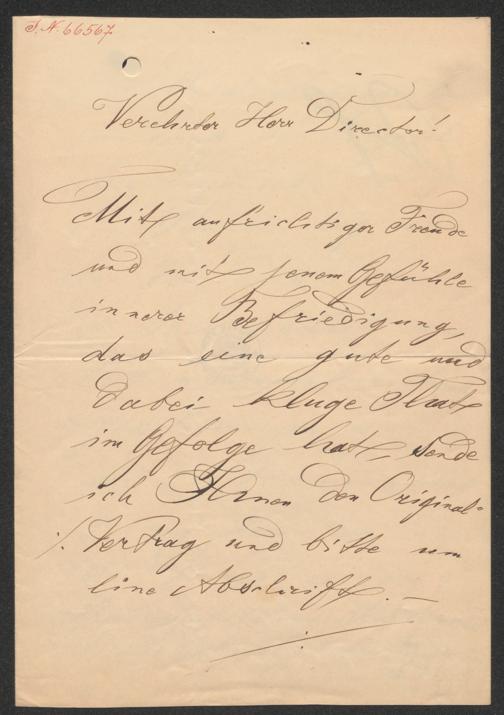 J. N. 66567
Verehrter Herr Director!
Mit aufrichtiger Freude
und mit jenem Gefühle
innerer Befriedigung,
das eine gute und
dabei kluge That
im Gefolge hat, sende
ich Ihnen den Original-
./. Vertrag und bitte um
eine Abschrift. —